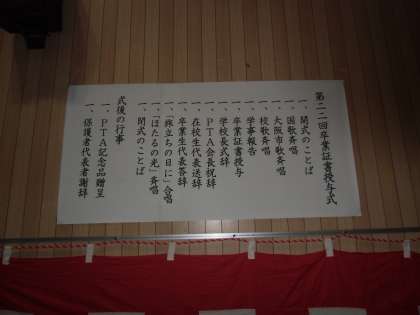 第二二回卒業証書授与式
一、開式のことば
一、国歌斉唱
一、大阪市歌斉唱
一、校歌斉唱
一、学事報告
一、卒業証書授与
一、学校長式辞
一、PTA会長祝辞
一、在校生代表送辞
一、卒業生代表答辞
一、「旅立ちの日に」合唱
一、「ほたるの光」斉唱
一、閉式のことば
式後の行事
一、PTA記念品贈呈
一、保護者代表者謝辞